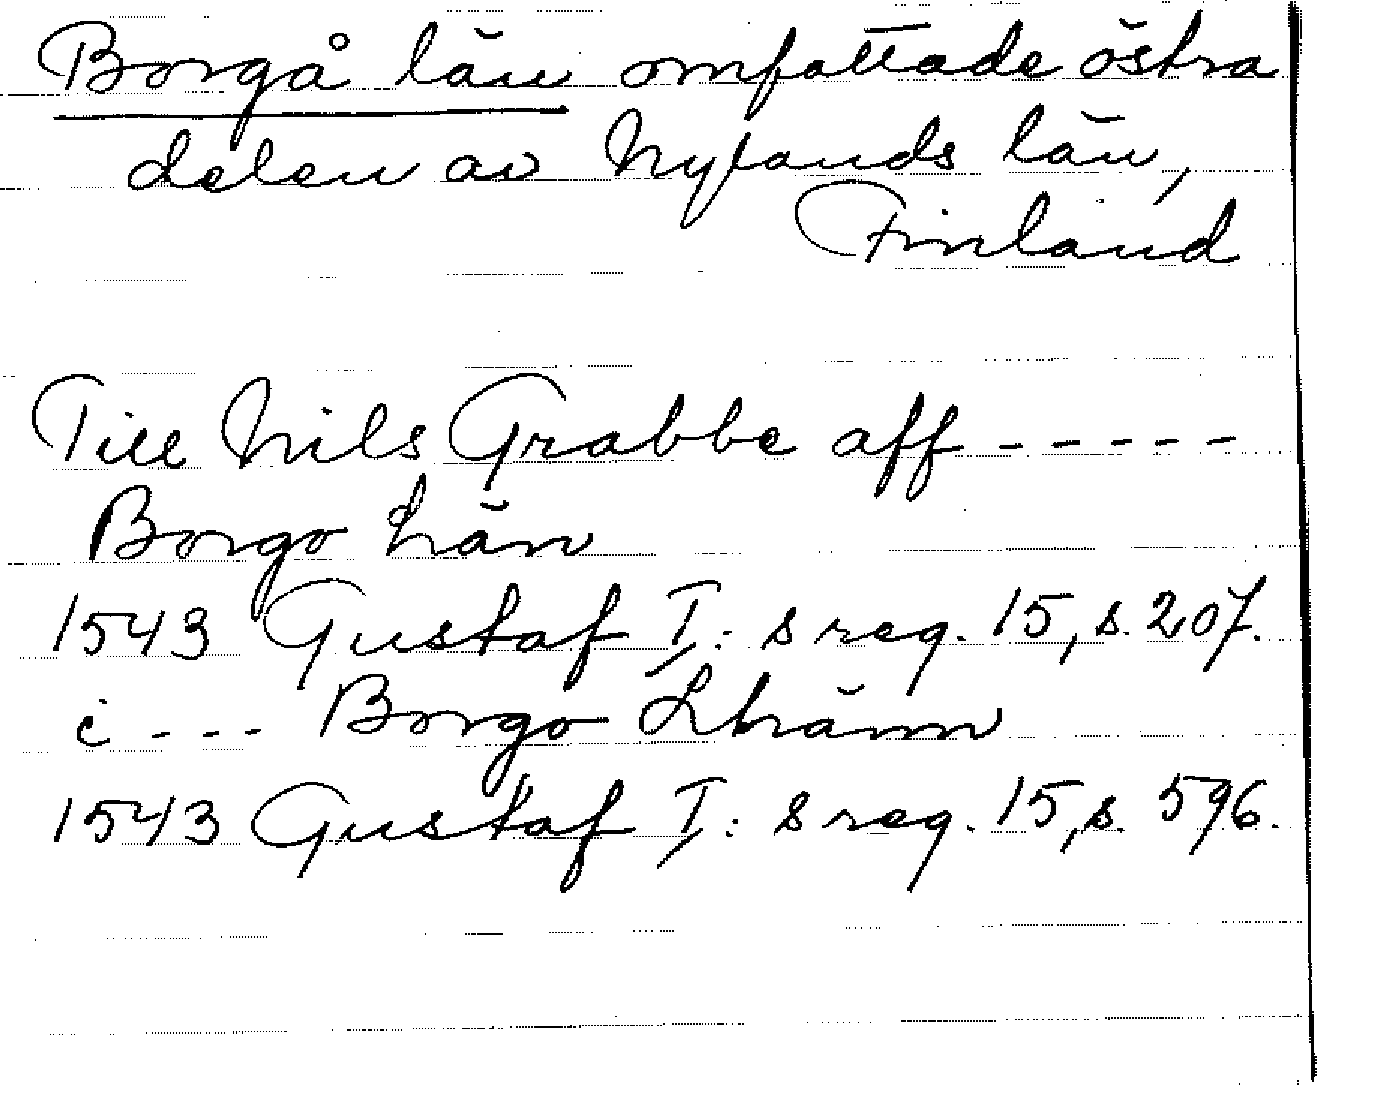 Borgå län omfattade östra
delen av Nylands län,
Finland
Till Nils Grabbe aff -----
Borgo Län
1543 Gustaf I:s reg. 15, s. 207.
i --- Borgo Lhänn
1543 Gustaf I:s reg. 15, s. 596.